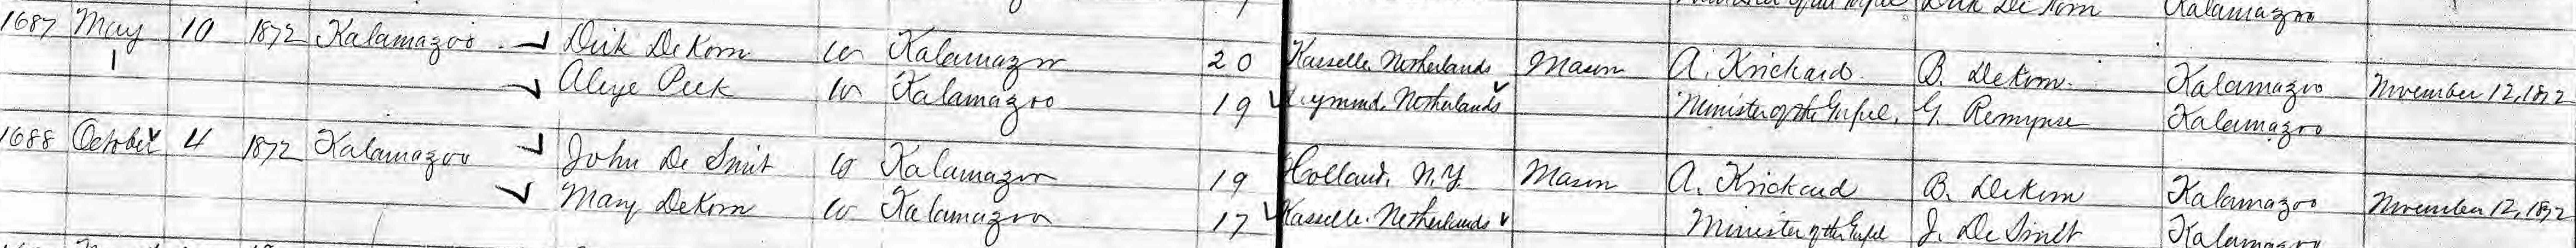 Dirk De Korn Kalamazoo
1687 May 10 1872 Kalamazoo Dirk DeKorn W Kalamazoo 20 Kaeselle Netherlands Mason A. Krickard B. DeKorn Kalamazoo November 12, 1872
Aleye Peek W Kalamazoo 19 Netherlands Minister of the Gospel, G. Remynse Kalamazoo
1688 October 4 1872 Kalamazoo John De Smit W Kalamazoo 19 Holland, N.Y. Mason A. Krickard B. DeKorn Kalamazoo November 12, 1872
Mary DeKorn W Kalamazoo 17 Kasselle Netherlands Minister of the Gospel J. De Smit Kalamazoo